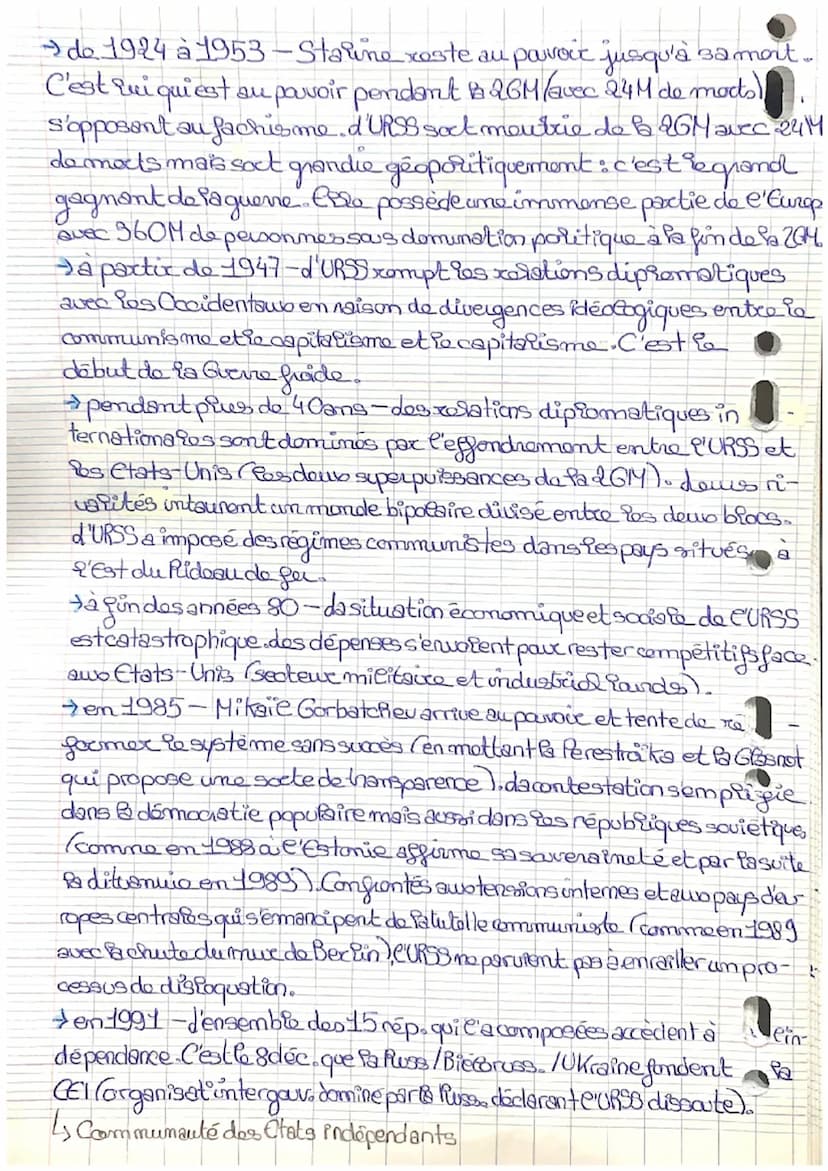 → de 1924 à 1953 - Staline reste au pouvoir jusqu'à sa mort.
C'est lui qui est au pouvoir pendant la 2GM (avec 24M de morts)
s'opposant au fachisme. L'URSS sort meutrie de la 2GM avec 24M
de morts mais sort grandie géopolitiquement : c'est le grand
gagnant de la guerre. Elle possède une immense partie de l'Europ
avec 360M de personnes sous domination politique à la fin de la 2GM.
→ à partir de 1947 - L'URSS rompt les relations diplomatiques
avec les Occidentaux en raison de divergences idéologiques entre le
communisme et le capitalisme et le capitalisme. C'est le
début de la Guerre froide.
→ pendant plus de 40ans - Les relations diplomatiques in-
ternationales sont dominés par l'effondrement entre l'URSS et
les Etats-Unis (les deux superpuissances de la 2GM). Leurs ri-
valités instaurent un monde bipolaire divisé entre les deux blocs.
L'URSS a imposé des régimes communistes dans les pays situés à
l'Est du Rideau de fer.
→ à fin des années 80 - La situation économique et sociale de l'URSS
est catastrophique. Les dépenses s'envolent pour rester compétitifs face
aux Etats-Unis (secteur militaire et industriel lourds).
→ en 1985 - Mikaïe Gorbatchev arrive au pouvoir et tente de ré-
former le système sans succès (en mettant la Perestroïka et la Glasnot
qui propose une sorte de transparence). La contestation s'emplifie
dans la démocratie populaire mais aussi dans les républiques soviétique,
(comme en 1988 à l'Estonie affirme sa souveraineté et par la suite
la Lituanie en 1989). Confrontés aux tensions internes et aux pays d'eu-
ropes centrales qui s'émancipent de la tutelle communiste (comme en 1989
avec la chute du mur de Berlin), l'URSS ne parvient pas à enrailler un pro-
cessus de dislocation.
→ en 1991 - L'ensemble des 15 rép. qui l'a composées accèdent à l'in-
dépendance. C'est le 8 déc. que la Russ/Biélorus./Ukraine fondent la
CEI (organisat° intergouv. dominé par la Russ. déclarent l'URSS dissoute).
↳ Communauté des Etats indépendants